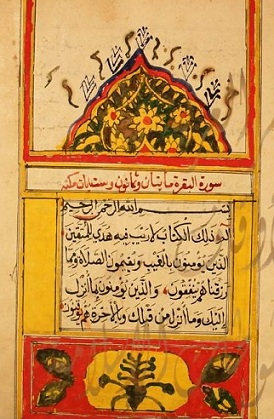 سورة البقرة مايتان وثمانون وست ايات مكية
بسم الله الرحمن الرحيم
الم ذلك الكتاب لا ريب فيه هدى للمتقين
الذين يؤمنون بالغيب ويقيمون الصلاة ومما
رزقناهم ينفقون والذين يؤمنون بما أنزل
إليك وما أنزل من قبلك وبالآخرة هم يوقنون